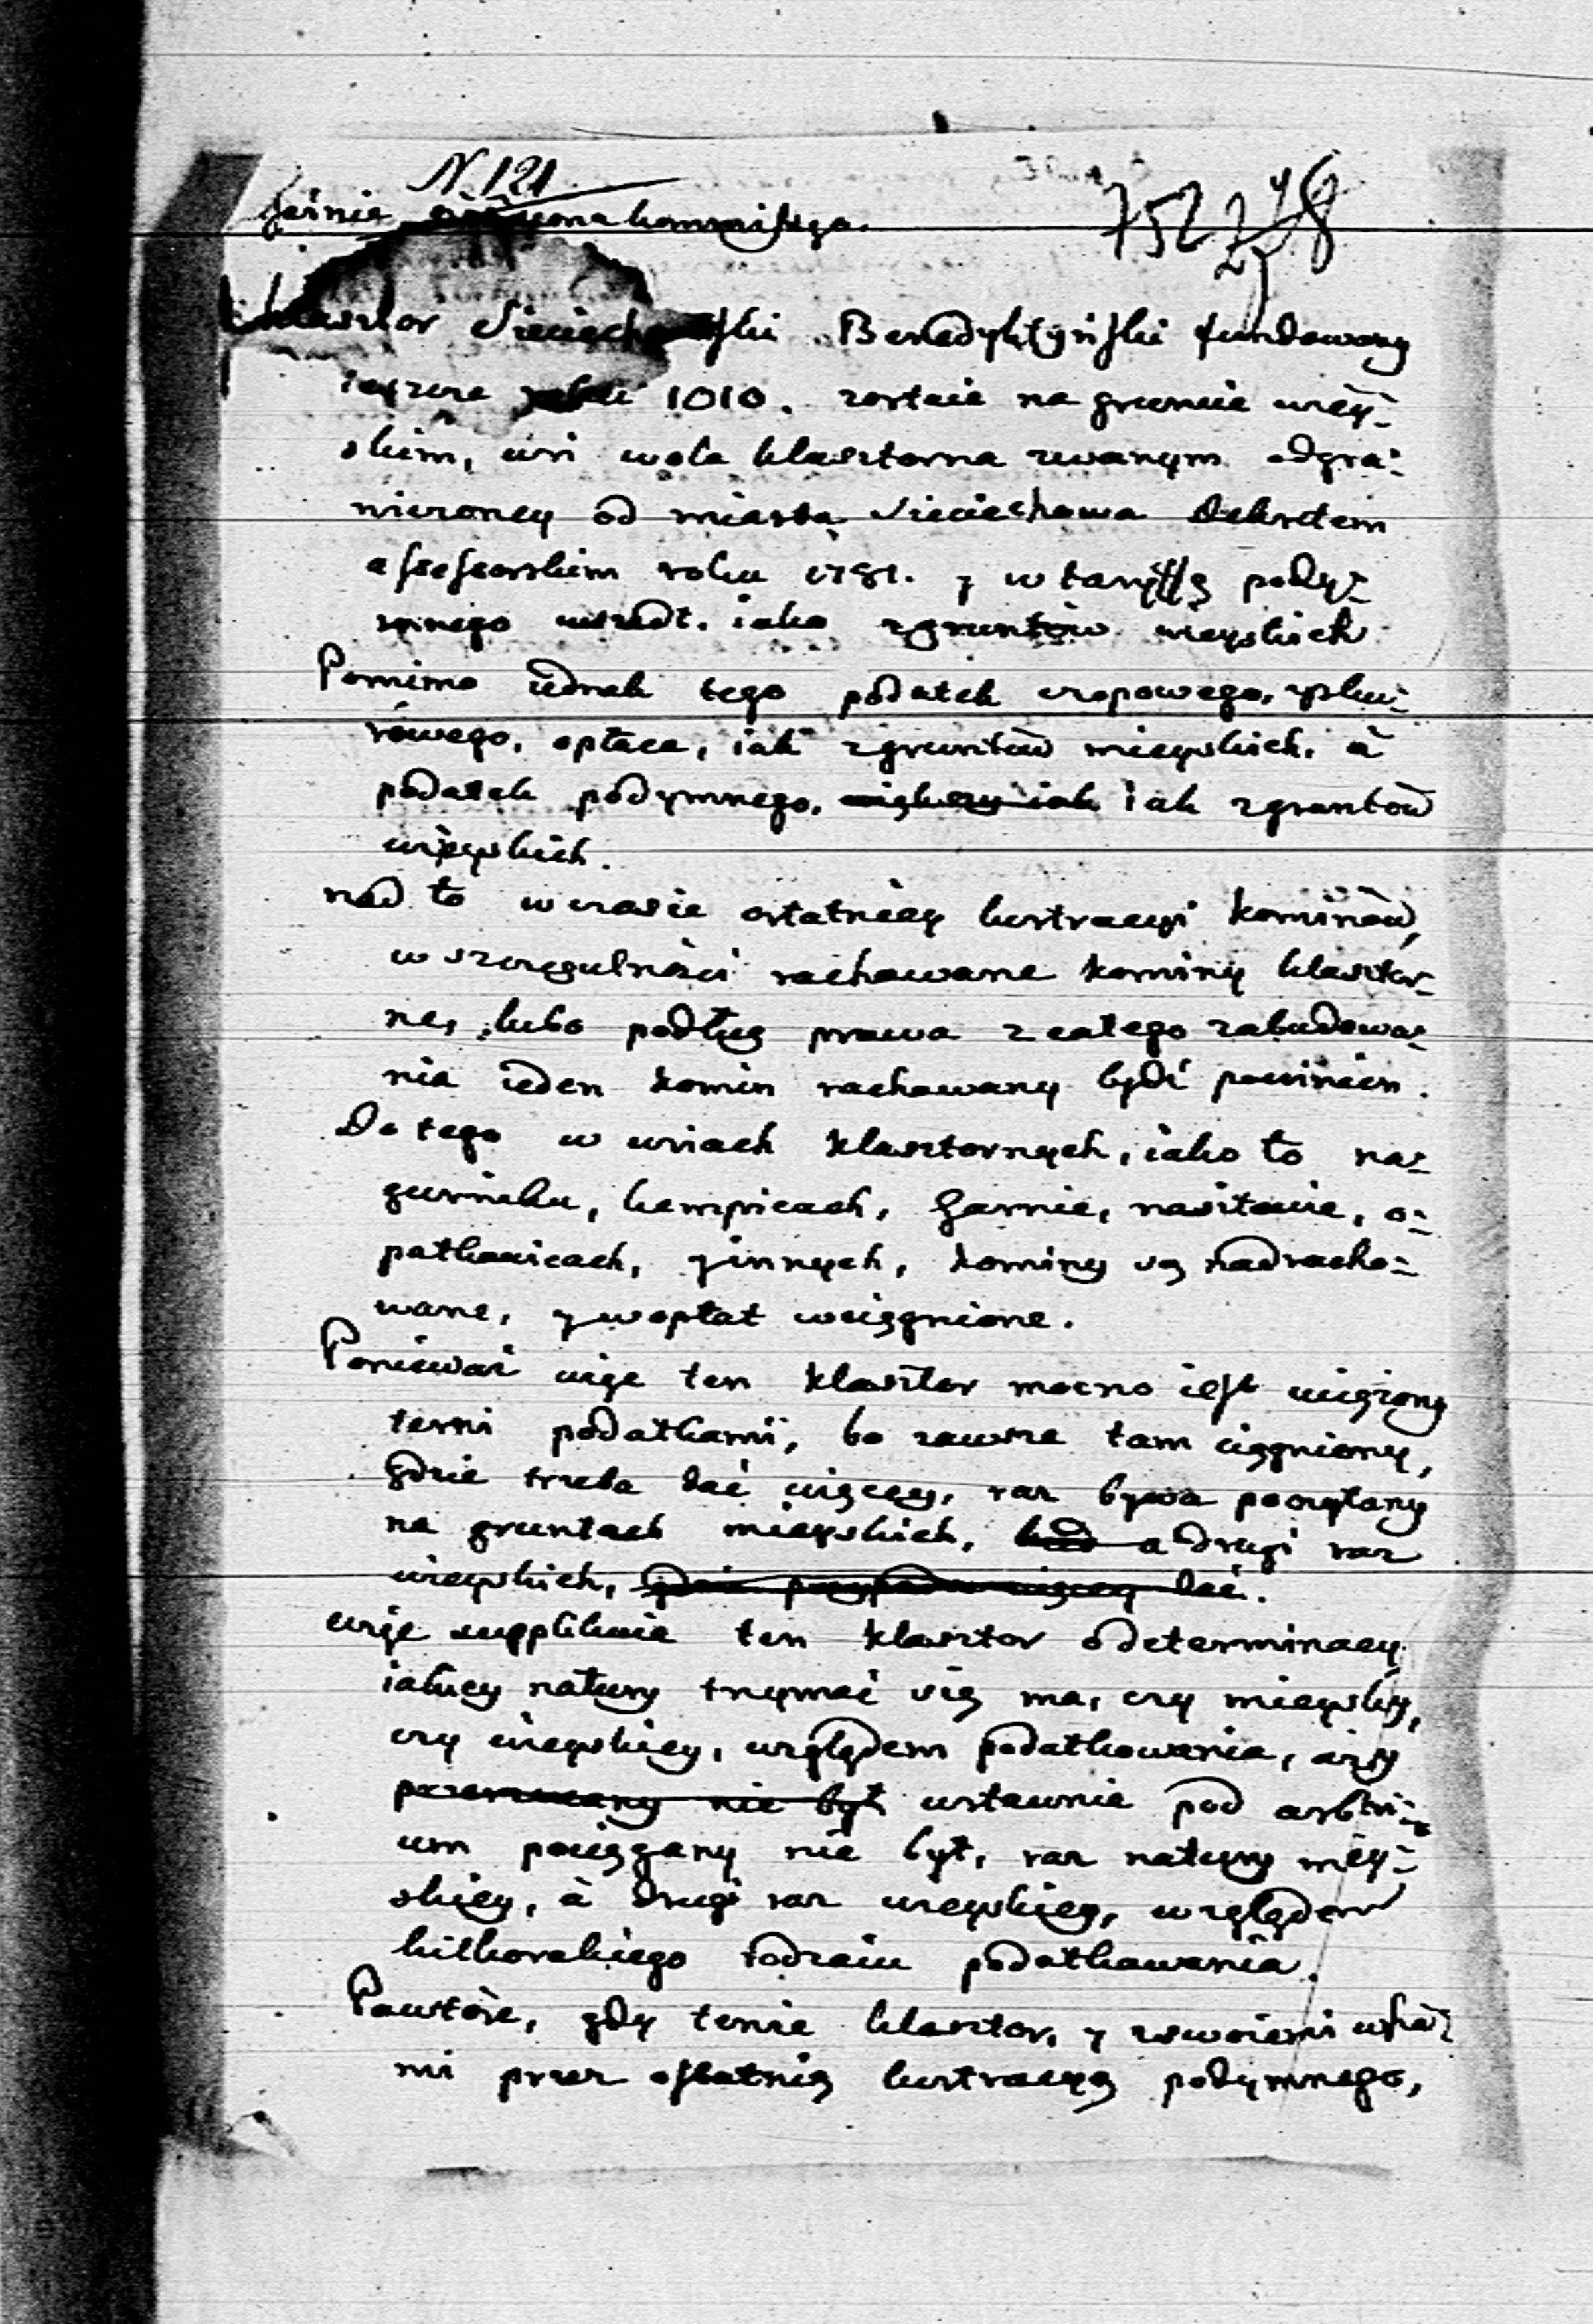 N. 121
752
Klasztor Sieciechowski Benedyktyński fundowany
ieszcze roku 1010. zostaie na gruncie wiey=
skim, wsi wola klasztorna zwanym odgra=
niczoney od miasta Sieciechowa dekretem
assessorskim roku 1781. y w taryffę pody=
mnego wszedł. iako z gruntów wieyskich
Pomimo iednak tego podatek czopowego, szelę=
żowego, opłaca, iak z gruntów mieyskich. à
podatek podymnego, większy iak iak z gruntów
wieyskich.
nad to w czasie ostatniey lustracyi kominów,
w szczegulności rachowane kominy klasztor=
ne, lubo podług prawa z całego zabudowa=
nia ieden komin rachowany bydź powinien.
Do tego w wsiach klasztornych, iako to na=
gurniku, kempicach, Garnie, nasitowie, o=
patkowicach, y innych, kominy są nadracho=
wane, y w opłat wciągnione.
Ponieważ więc ten klasztor mocno iest uciążony
temi podatkami, bo zawsze tam ciągniony,
gdzie trzeba dać więcey, raz bywa poczytany
na gruntach mieyskich, a drugi raz
wieyskich, gdzie przypada więcey dać.
więc supplikuie ten klasztor o determinacyą
iakiey natury trzymać się ma, czy mieyskiey,
czy wieyskiey, względem podatkowania, ażeby
nie był ustawnie pod arbitri=
um pociągany nie był, raz natury miey=
skiey, à drugi raz wieyskiey, względem
kilkorakiego rodzaiu podatkowania.
Powtóre, gdy tenże klasztor, y z swoiemi wsia=
mi przez ostatnią lustracyą podymnego,